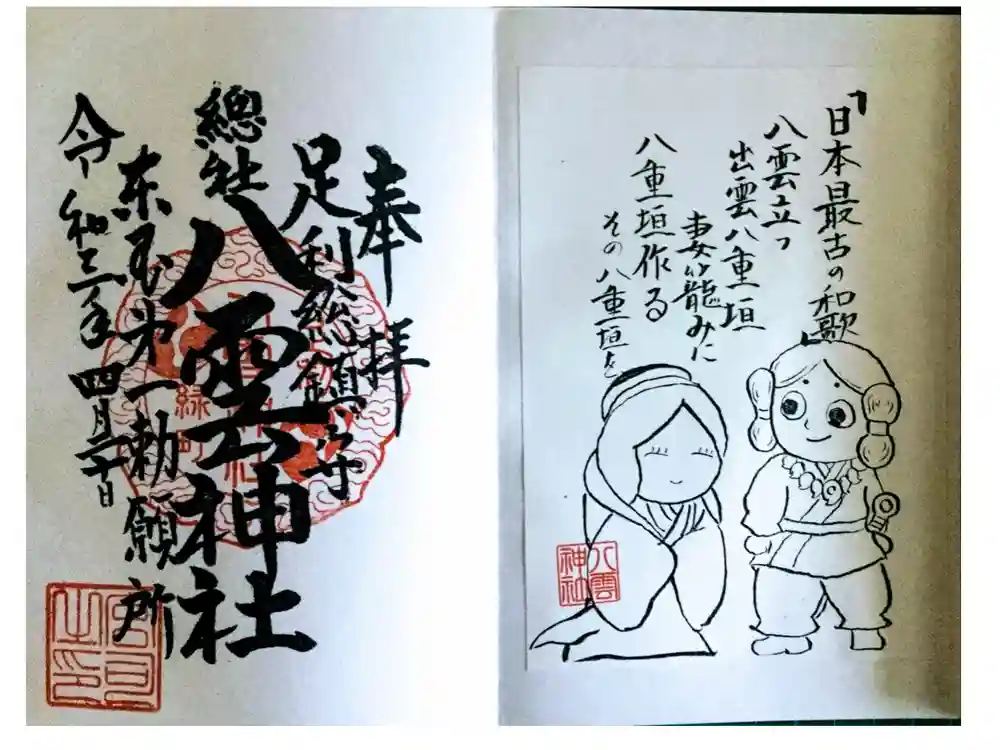 「日本最古の和歌」
八雲立つ
出雲八重垣
妻籠みに
八重垣作る
その八重垣を
八雲
神社
奉拝
足利総鎮守
總社
八雲神社
緑町
東国第一勅願所
令和三年四月三十日
宮司
之印